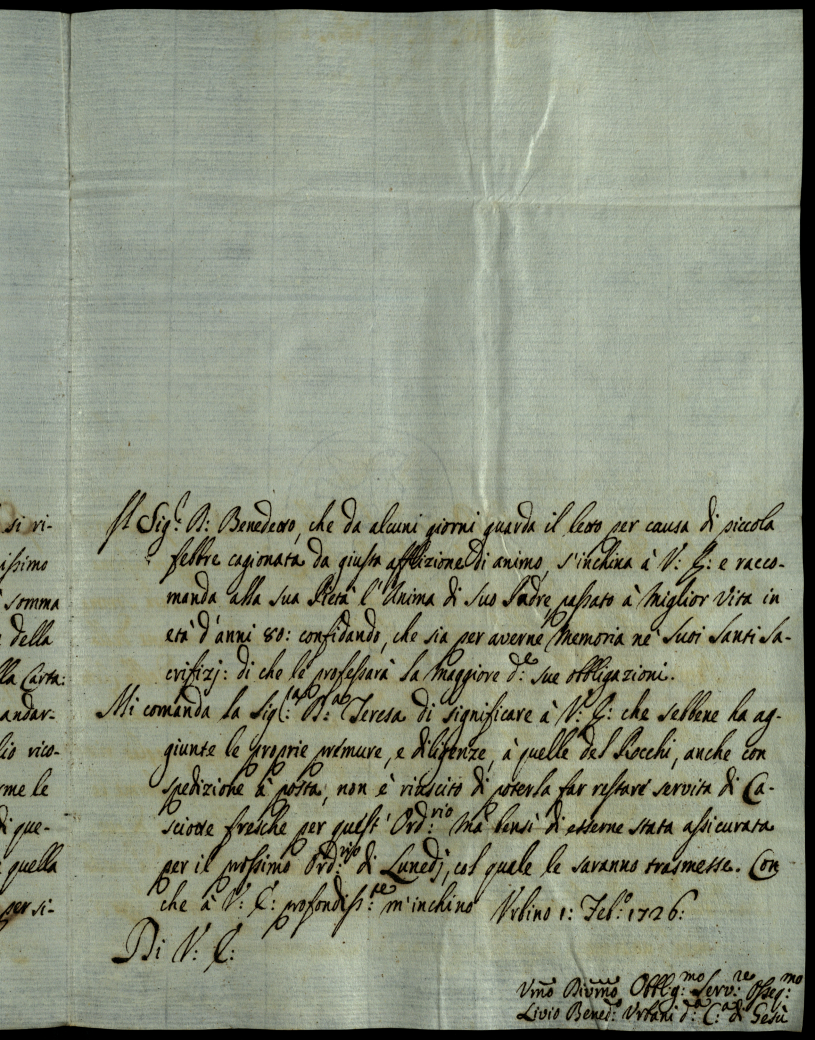 si ri-
issimo
somma
della
lla Carta:
andar-
lio rico-
rme le
di que-
quella
per si-
Il Sig.r D: Benedetto, che da alcuni giorni guarda il letto per causa di piccola
febbre cagionata da giusta afflizione di animo, s'inchina à V: E: e racco-
manda alla sua Pietà l'Anima di suo Padre, passato à miglior vita in
età d'anni 80: confidando, che sia per averne memoria ne' suoi santi Sa-
crifizj: di che le professarà la maggiore d.e sue obbligazioni.
Mi comanda la Sig.ra D.a Teresa di significare à V: E: che sebbene ha ag-
giunte le proprie premure, e diligenze, à quelle del Rocchi, anche con
spedizione à posta, non è riuscito di poterla far restare servita di Ca-
sciotte fresche per quest' Ord:rio mà bensì di esserne stata assicurata
per il prossimo Ord:rio di Lunedj, col quale le saranno trasmesse. Con
che à V: E: profondiss:te m'inchino Vrbino 1: Feb:o 1726:
Di V: E:
Vmo Divmo Obblig:mo Serv:re Osseq:mo
Livio Bened: Vrbani d:a C:a di Gesù